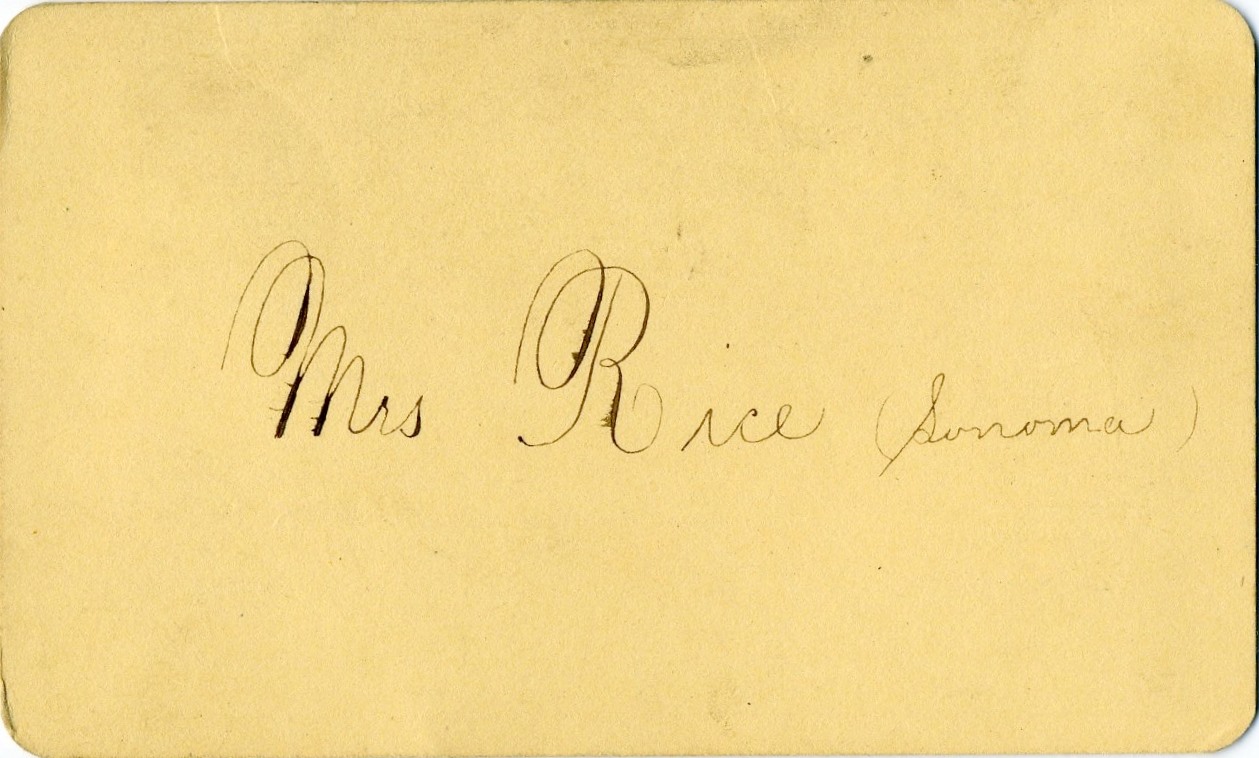 Mrs Rice (Sonoma)